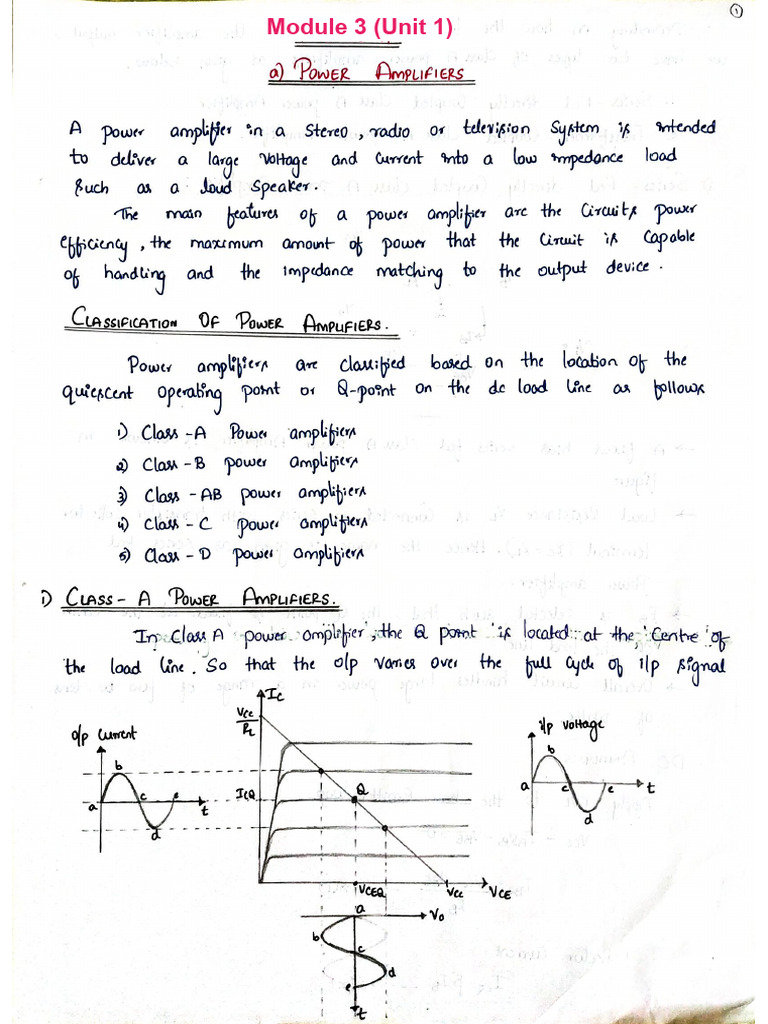 Module 3 (Unit 1)
1
a) POWER AMPLIFIERS
A power amplifier in a Stereo, radio or television System is intended
to deliver a large voltage and current into a low impedance load
Such as a loud Speaker.
The main features of a power amplifier are the Circuits power
efficiency, the maximum amount of power that the Circuit is Capable
of handling and the impedance matching to the output device.
CLASSIFICATION OF POWER AMPLIFIERS.
Power amplifiers are classified based on the location of the
quiescent operating point or Q-point on the dc load line as follows
1) Class -A Power amplifiers
2) Class -B power amplifiers
3) Class -AB power amplifiers
4) Class -C power amplifiers
5) Class -D power amplifiers
1) CLASS - A POWER AMPLIFIERS.
In Class A power amplifier, the Q point is located at the Centre of
the load line. So that the o/p varies over the full cycle of i/p signal
o/p current
a b c d e t
IC
VCC/RL
ICQ
Q
VCEQ VCC VCE
i/p voltage
a b c d e t
a V0
b
c
d
e
t